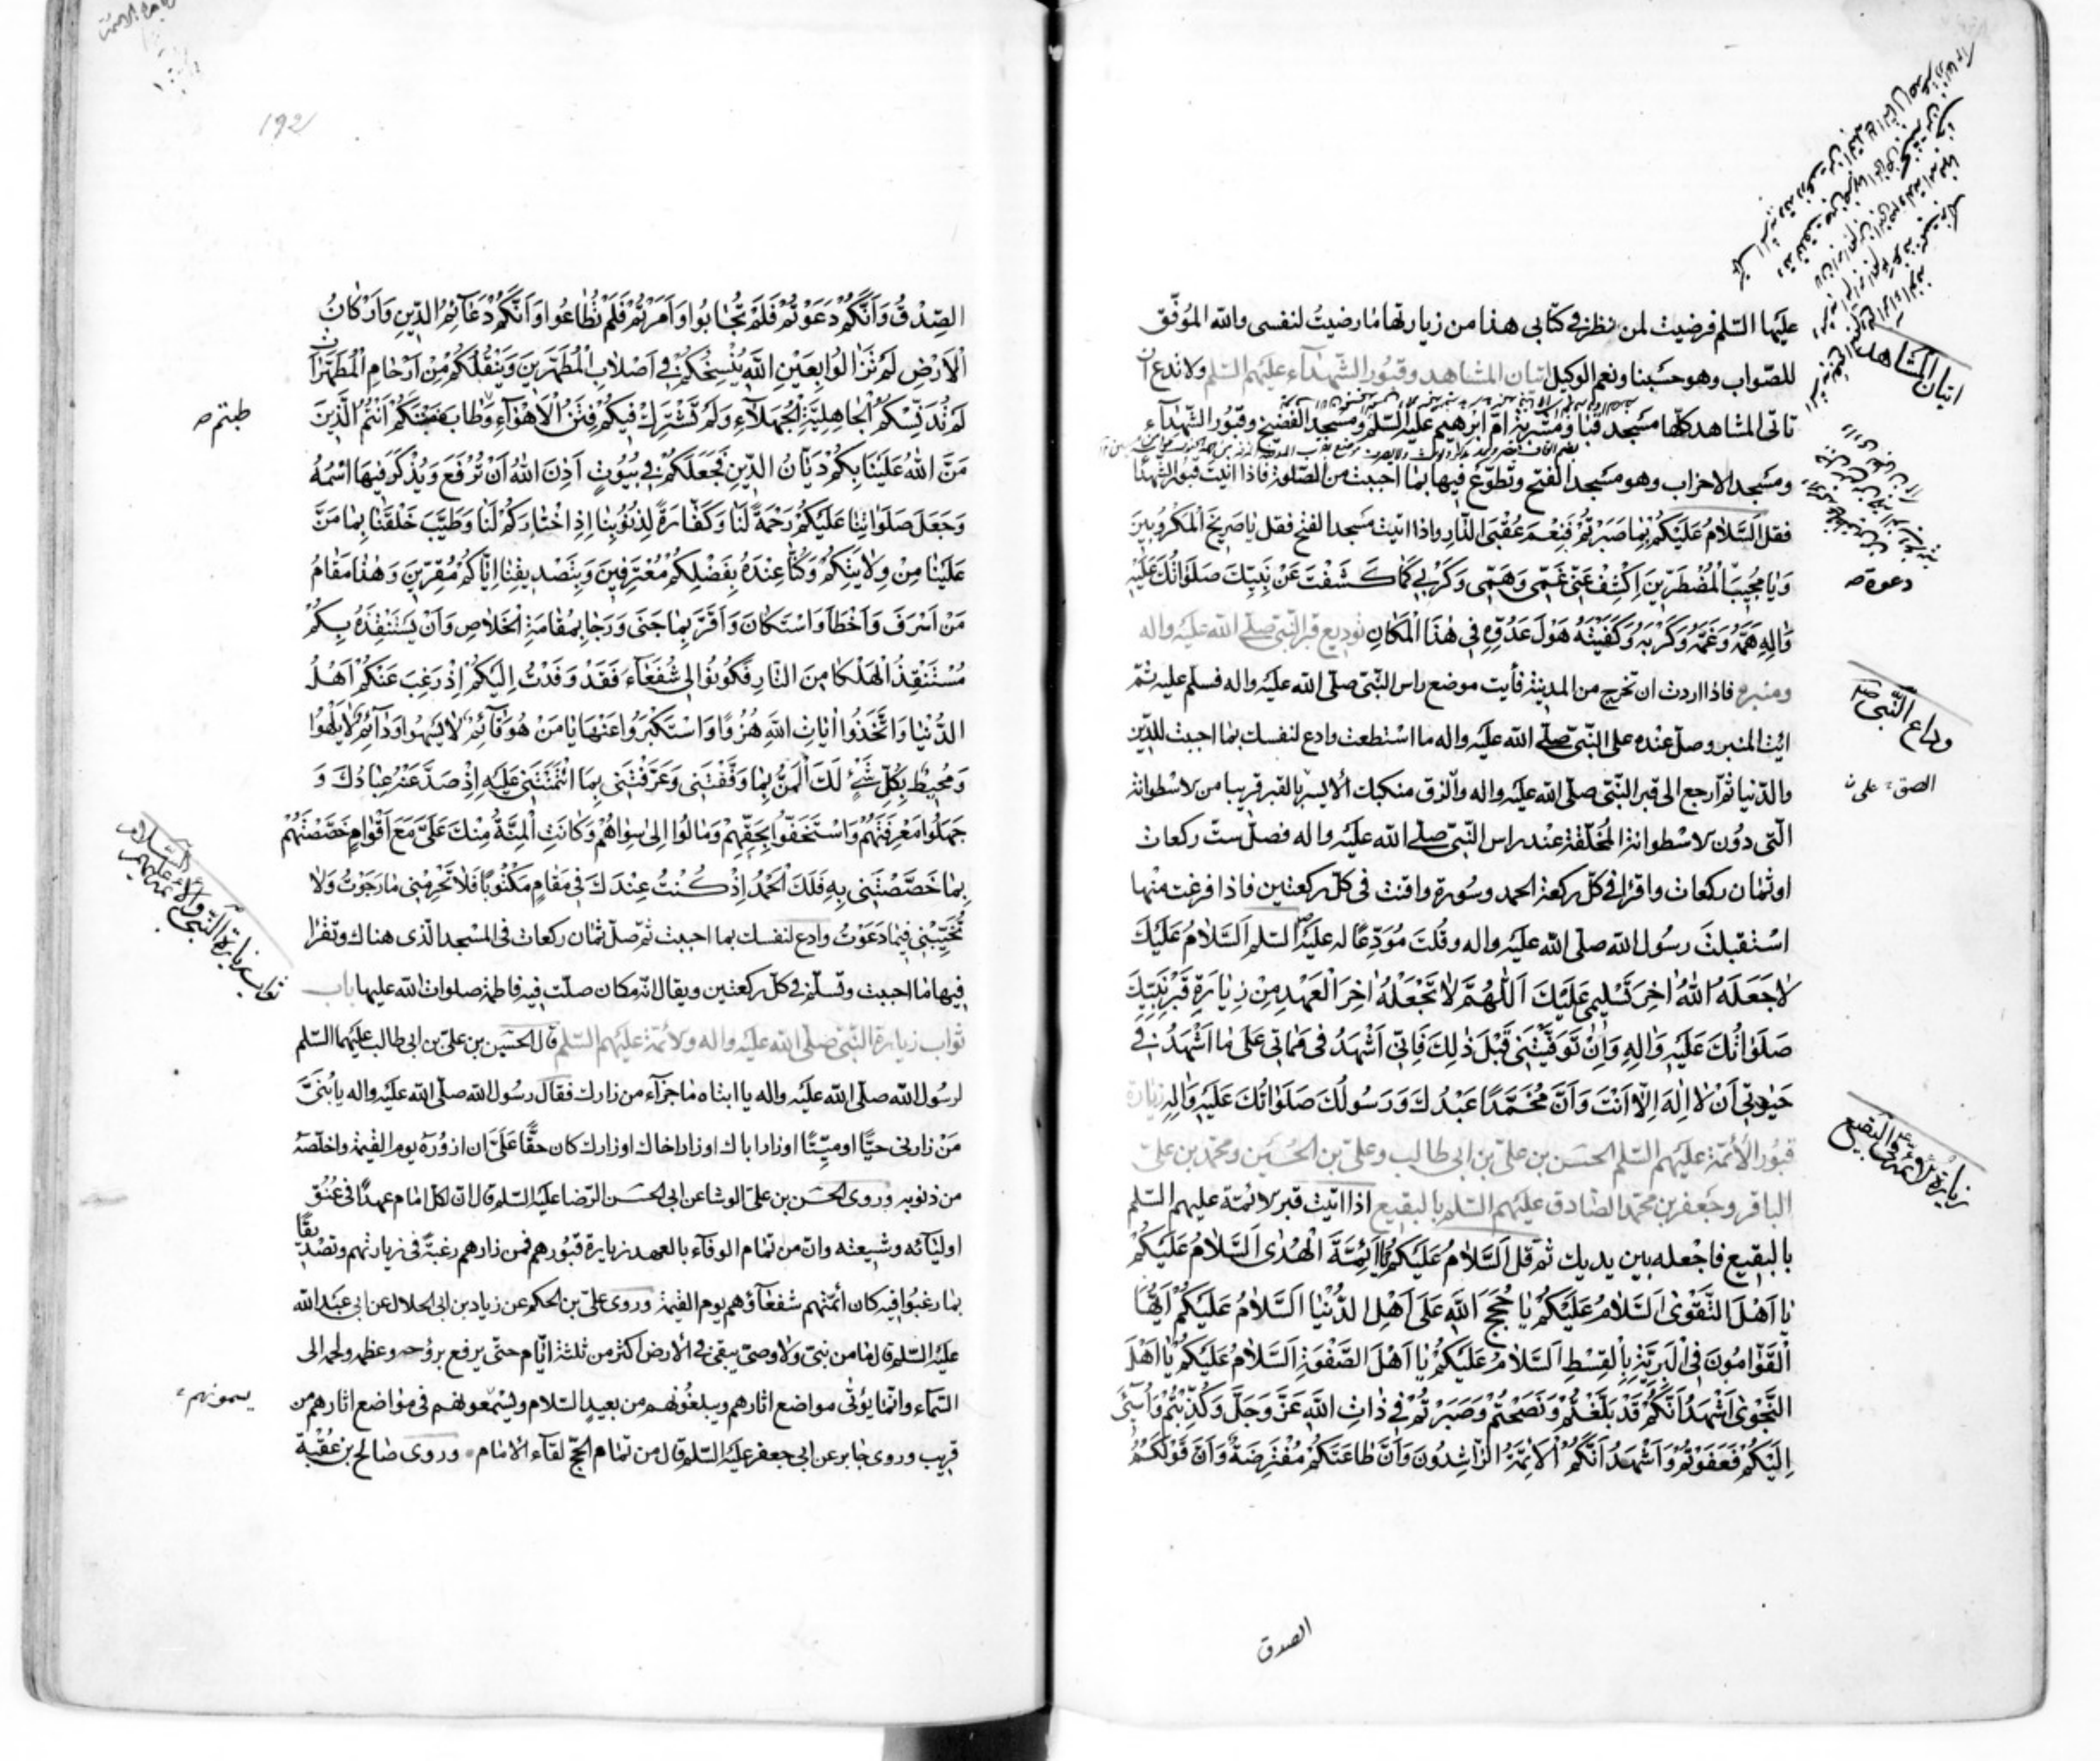 عليها السّلم فرضيت لمن نظر في كتابي هذا من زيارتها ما رضيت لنفسي والله الموفّق
للصّواب وهو حسبنا ونعم الوكيل اتيان المشاهد وقبور الشّهدآء عليهم السّلم ولا تدع ان
تاتى المشاهد كلّها مسجد قبا ومشربة امّ ابرهيم عليه السّلم ومسجد الفضيخ وقبور الشّهدآء
ومسجد الاحزاب وهو مسجد الفتح وتطوّع فيها بما احببت من الصّلوة فاذا اتيت قبور الشّهدآ
فقل اَلسَّلامُ عَلَيكُم بِما صَبَرتُم فَنِعمَ عُقبَى الدّار واذا اتيت مسجد الفتح فقل يا صَريخَ المَكرُوبينَ
وَيا مُجيبَ المُضطَرّينَ اِكشِف عَنّى غَمّى وَهَمّى وَكَربى كَما كَشَفتَ عَن نَبِيِّكَ صَلَواتُكَ عَلَيهِ
وَالِهِ هَمَّهُ وَغَمَّهُ وَكَربَهُ وَكَفَيتَهُ هَولَ عَدُوِّهِ فى هٰذَا المَكانِ توديع قبر النّبى صلّى الله عليه واله
ومنبره فاذا اردت ان تخرج من المدينة فأيت موضع راس النّبى صلّى الله عليه واله فسلّم عليه ثمّ
ائت المنبر وصلّ عنده على النّبى صلّى الله عليه واله ما استطعت وادع لنفسك بما احببت للدّين
والدّنيا ثم ارجع الى قبر النّبى صلّى الله عليه واله والزق منكبك الأيسر بالقبر قريبا من الاسطوانة
الّتى دون الاسطوانة المُخَلَّقة عند راس النّبى صلّى الله عليه واله فصلّ ستّ ركعات
او ثمان ركعات واقرا فى كلّ ركعة الحمد وسورة واقنت فى كلّ ركعتين فاذا فرغت منها
استقبلت رسول الله صلّى الله عليه واله وقلت مُوَدِّعًا له عليه السّلم اَلسَّلامُ عَلَيكَ
لا جَعَلَهُ اللهُ اخِرَ تَسليمى عَلَيكَ اَللّٰهُمَّ لا تَجعَلهُ اخِرَ العَهدِ مِن زِيارَةِ قَبرِ نَبِيِّكَ
صَلَواتُكَ عَلَيهِ وَالِهِ وَاِن تَوَفَّيتَنى قَبلَ ذٰلِكَ فَاِنّى اَشهَدُ فى مَماتى عَلى ما اَشهَدُ فى
حَيٰوتى اَن لا اِلٰهَ اِلّا اَنتَ وَاَنَّ مُحَمَّدًا عَبدُكَ وَرَسولُكَ صَلَواتُكَ عَلَيهِ وَالِهِ زيارة
قبور الأئمّة عليهم السّلم الحسن بن علىّ بن ابى طالب وعلىّ بن الحسين ومحمّد بن علىّ
الباقر وجعفر بن محمّد الصّادق عليهم السّلم بالبقيع اذا اتيت قبر الائمّة عليهم السّلم
بالبقيع فاجعله بين يديك ثمّ قل اَلسَّلامُ عَلَيكُم يا اَئِمَّةَ الهُدى اَلسَّلامُ عَلَيكُم
يا اَهلَ التَّقوى اَلسَّلامُ عَلَيكُم يا حُجَجَ اللهِ عَلى اَهلِ الدُّنيا اَلسَّلامُ عَلَيكُم اَيُّهَا
القَوّامُونَ فِى البَرِيَّةِ بِالقِسطِ اَلسَّلامُ عَلَيكُم يا اَهلَ الصَّفوَةِ اَلسَّلامُ عَلَيكُم يا اَهلَ
النَّجوى اَشهَدُ اَنَّكُم قَد بَلَّغتُم وَنَصَحتُم وَصَبَرتُم فى ذاتِ اللهِ عَزَّ وَجَلَّ وَكُذِّبتُم وَاُسِيئَ
اِلَيكُم فَعَفَوتُم وَاَشهَدُ اَنَّكُمُ الاَئِمَّةُ الرّاشِدُونَ وَاَنَّ طاعَتَكُم مُفتَرَضَةٌ وَاَنَّ قَولَكُمُ
الصدق
اتيان المشاهد
دعوة
وداع النّبى ص
زيارة الأئمّة ع بالبقيع
192
الصِّدقُ وَاَنَّكُم دَعَوتُم فَلَم تُجابُوا وَاَمَرتُم فَلَم تُطاعُوا وَاَنَّكُم دَعآئِمُ الدّينِ وَاَركانُ
الاَرضِ لَم تَزالُوا بِعَينِ اللهِ يَنسِخُكُم فى اَصلابِ المُطَهَّرينَ وَيَنقُلُكُم مِن اَرحامِ المُطَهَّراتِ
لَم تُدَنِّسكُمُ الجاهِلِيَّةُ الجَهلآءُ وَلَم تَشتَرِك فيكُم فِتَنُ الاَهوآءِ وَطابَ مَنبَتُكُم اَنتُمُ الَّذينَ
مَنَّ اللهُ عَلَينا بِكُم دَيّانُ الدّينِ فَجَعَلَكُم فى بُيُوتٍ اَذِنَ اللهُ اَن تُرفَعَ وَيُذكَرَ فيهَا اسمُهُ
وَجَعَلَ صَلَواتِنا عَلَيكُم رَحمَةً لَنا وَكَفّارَةً لِذُنُوبِنا اِذِ اختارَكُم لَنا وَطَيَّبَ خَلقَنا بِما مَنَّ
عَلَينا مِن وِلايَتِكُم وَكُنّا عِندَهُ بِفَضلِكُم مُعتَرِفينَ وَبِتَصديقِنا اِيّاكُم مُقِرّينَ وَهٰذا مَقامُ
مَن اَسرَفَ وَاَخطَأَ وَاستَكانَ وَاَقَرَّ بِما جَنى وَرَجا بِمَقامَةِ الخَلاصِ وَاَن يَستَنقِذَهُ بِكُم
مُستَنقِذُ الهَلكى مِنَ النّارِ فَكُونُوا لى شُفَعآءَ فَقَد وَفَدتُ اِلَيكُم اِذ رَغِبَ عَنكُم اَهلُ
الدُّنيا وَاتَّخَذُوا اٰياتِ اللهِ هُزُوًا وَاستَكبَرُوا عَنها يا مَن هُوَ قآئِمٌ لا يَسهُو وَدآئِمٌ لا يَلهُوا
وَمُحيطٌ بِكُلِّ شَىءٍ لَكَ المَنُّ بِما وَفَّقتَنى وَعَرَّفتَنى بِمَا ائتَمَنتَنى عَلَيهِ اِذ صَدَّ عَنهُ عِبادُكَ وَ
جَهِلُوا مَعرِفَتَهُم وَاستَخَفُّوا بِحَقِّهِم وَمالُوا اِلى سِواهُم وَكانَتِ المِنَّةُ مِنكَ عَلَىَّ مَعَ اَقوامٍ خَصَصتَهُم
بِما خَصَصتَنى بِهِ فَلَكَ الحَمدُ اِذ كُنتُ عِندَكَ فى مَقامٍ مَكتُوبًا فَلا تَحرِمنى ما رَجَوتُ وَلا
تُخَيِّبنى فيما دَعَوتُ وادع لنفسك بما احببت ثم صلّ ثمان ركعات فى المسجد الّذى هناك وتقرا
فيها ما احببت وتسلّم فى كلّ ركعتين ويقال انّه مكان صلّت فيه فاطمة صلوات الله عليها باب
ثواب زيارة النّبى صلّى الله عليه واله والأئمّة عليهم السّلم قال الحسين بن علىّ بن ابى طالب عليهما السّلم
لرسول الله صلّى الله عليه واله يا ابتاه ما جزآء من زارك فقال رسول الله صلّى الله عليه واله يا بُنَىَّ
مَن زارنى حيًّا او ميّتًا او زار اباك او زار اخاك او زارك كان حقًّا عَلَىَّ ان ازورَه يوم القيمة واخلّصه
من ذنوبه وروى الحسن بن علىّ الوشا عن ابى الحسن الرّضا عليه السّلم قال انّ لكلّ امام عهدًا فى عُنُق
اوليآئه وشيعته وانّ من تمام الوفآء بالعهد زيارة قبورهم فمن زارهم رغبةً فى زيارتهم وتصديقًا
بما رغبوا فيه كان ائمّتهم شفعآؤهم يوم القيمة وروى علىّ بن الحكم عن زياد بن ابى الحلال عن ابى عبد الله
عليه السّلم قال ما من نبىّ ولا وصىّ يبقى فى الأرض اكثر من ثلثة ايّام حتى يرفع بروحه وعظمه ولحمه الى
السّمآء وانّما يؤتى مواضع اثارهم ويبلغونهم من بعيد السّلام ويُسمعونهم فى مواضع اثارهم من
قريب وروى جابر عن ابى جعفر عليه السّلم قال من تمام الحجّ لقآء الامام وروى صالح بن عُقبة
ثواب زيارة النّبى والأئمّة عليهم السّلام